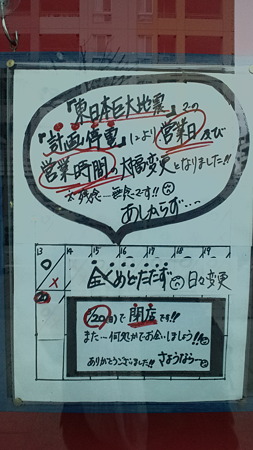 『東日本巨大地震』での
『計画停電』により営業日及び
営業時間の大幅変更となりました!!
あしからず…
13 14 15 16 17 18 19
全くめどたたず 日々変更
20
20(日)で閉店です!!
また…何処かでお会いしましょう!!
ありがとうございました!! さようなら〜